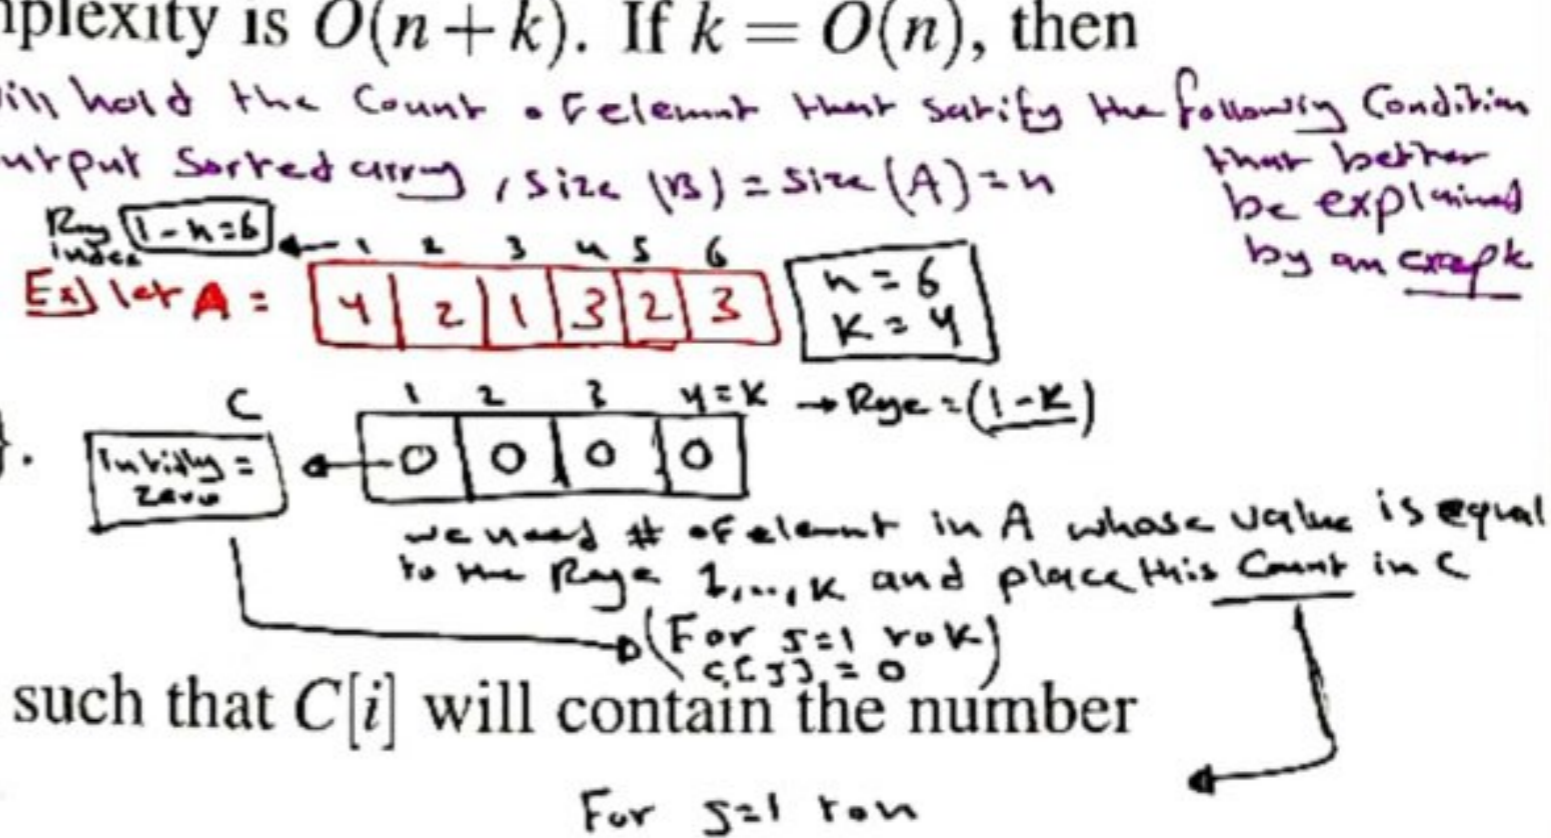 mplexity is O(n+k). If k = O(n), then
ill hold the Count of elemnt that satify the following Condition
that better
be explained
by an
utput Sorted array, size (B) = size (A) = n
1 - n = 6
index
1 2 3 4 5 6
Ex) let A = 4 2 1 3 2 3
n = 6
K = 4
C
1 2 3 4 = K → Rage = (1-K)
}.
Initially =
zero
0 0 0 0
we need # of elemnt in A whose value is equal
to the Rage 1,...,K and place this Count in C
(For J=1 to K)
C[J] = 0
such that C[i] will contain the number
For J=1 to n